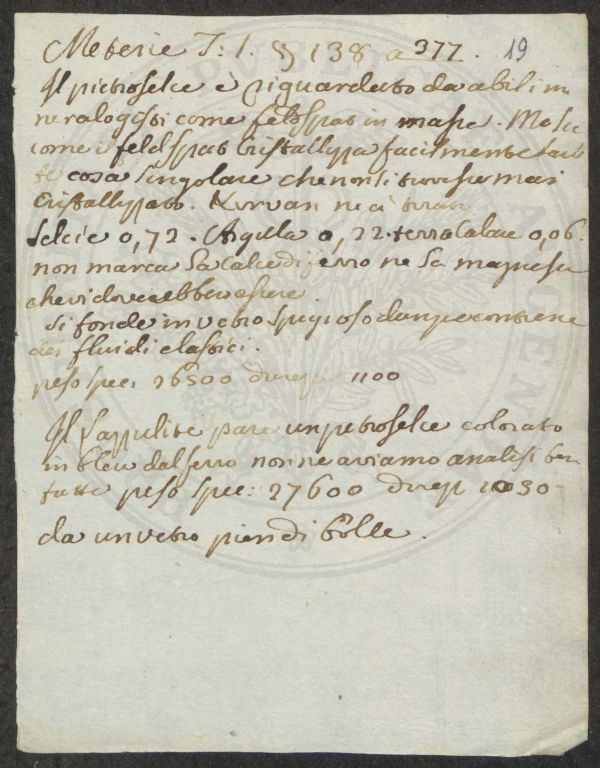 Meterie T: 1. § 138 a 377. 19
Il pietroselce è riguardato da abili mi
neralogisti come feldspat in masse. Ma sic
come i feldspat cristallizza facilmente sareb
be cosa singolare che non si trovasse mai
cristallizzato. Kirvan ne à
selcie 0,72. Argilla 0,22. terra calcae 0,06.
non marca la calce di ferro ne la magnesia
che vi dovrebbe essere.
Si fonde in vetro spugnoso dunque contiene
dei fluidi elastici.
peso spec: 26500 durezza 1100
Il Lazzulite pare un petroselce colorato
in bleu dal ferro non ne aviamo analisi ben
fatte peso spec: 27600 durez 1030
da un vetro pien di bolle.
PVBLICA